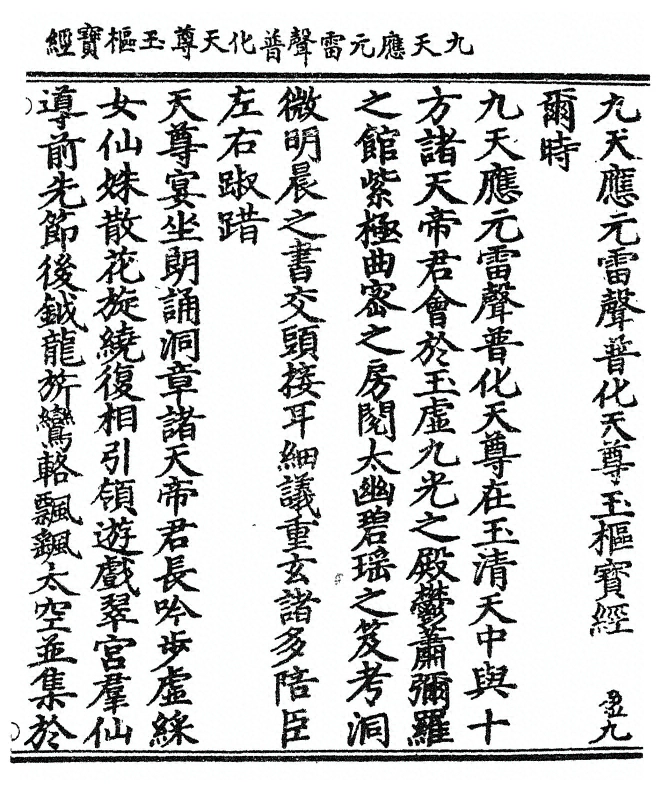 九天應元雷聲普化天尊玉樞寶經
九天應元雷聲普化天尊玉樞寶經 盈九
爾時
九天應元雷聲普化天尊在玉清天中與十
方諸天帝君會於玉虛九光之殿鬱蕭彌羅
之館紫極曲密之房閱太幽碧瑤之笈考洞
微明晨之書交頭接耳細議重玄諸多陪臣
左右踧踖
天尊宴坐朗誦洞章諸天帝君長吟步虛綵
女仙姝散花旋繞復相引領遊戲翠宮羣仙
導前先節後鉞龍旂鸞輅飄飖太空並集於